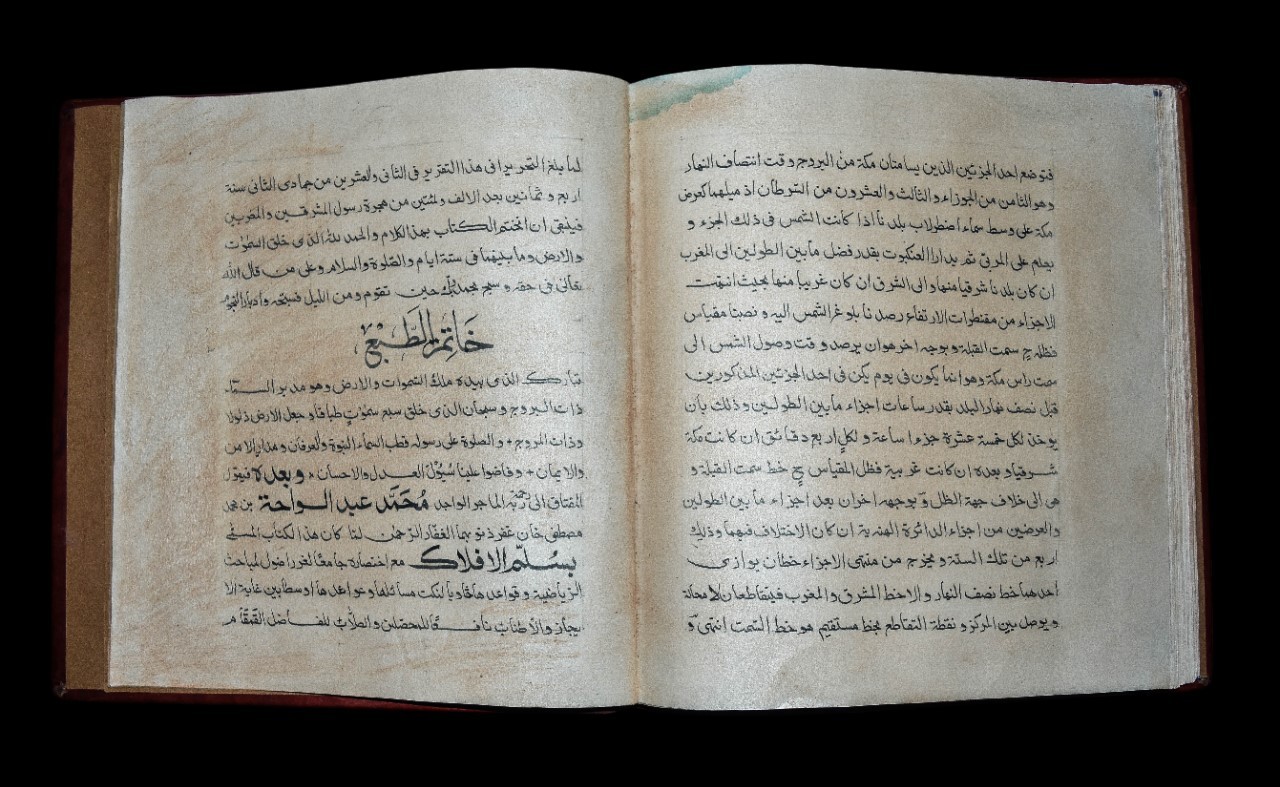 فتوضع احد الجزئين الذين يسامتان مكة من البروج وقت انتصاف النهار
وهو الثامن من الجوزاء والثالث والعشرون من السرطان اذ ميلهما كعرض
مكة على وسط سماء اصطلاب بلدنا اذا كانت الشمس في ذلك الجزء و
يعلم على المرى ثم يدار العنكبوت بقدر فضل ما بين الطولين الى المغرب
ان كان بلدنا شرقيا منها والى الشرق ان كان غربيا منها بحيث انتهت
الاجزاء من مقنطرات الارتفاع رصدنا بلوغ الشمس اليه و نصبنا مقياس
فظله ح سمت القبلة وبوجه اخر هو ان يرصد وقت وصول الشمس الى
سمت راس مكة وهو انما يكون في يوم يكن في احد الجزئين المذكورين
قبل نصف نهار البلد بقدر ساعات اجزاء ما بين الطولين وذلك بان
يوخذ لكل خمسة عشرة جزءا ساعة ولكل اربع دقائق ان كانت مكة
شرقيا وبعده ان كانت غربية فظل المقياس ح خط سمت القبلة و
هي الى خلاف جهة الظل و بوجه اخر ان بعد اجزاء ما بين الطولين
والعرضين من اجزاء الدائرة الهندية ان كان الاختلاف فيهما وذلك
اربع من تلك الستة و مخرج من منتهى الاجزاء خطان يوازى
احدهما خط نصف النهار و الاخر خط المشرق والمغرب فيتقاطعان لا محالة
و يوصل بين المركز و نقطة التقاطع بخط مستقيم هو خط السمت انتهى و
لما بلغ التحرير فى هذا التقرير فى الثانى والعشرين من جمادى الثانى سنة
اربع و ثمانين بعد الالف و مئتين من هجرة رسول المشرقين والمغربين
فينبغى ان اختتم الكتاب بهذا الكلام والحمد لله الذى خلق السموات
والارض وما بينهما فى ستة ايام والصلوة والسلام وعلى من قال الله
تعالى فى حقه وسبح بحمد ربك حين تقوم ومن الليل فسبحه وادبار النجوم
خَاتِمَة الطَّبْع
تبارك الذى بيده ملك السموات والارض وهو مدبر السماء
ذات البروج و سبحان الذى خلق سبع سموات طباقا وجعل الارض ذلولا
وذات المروج + والصلوة على رسوله قطب السماء النبوة والعرفان ومدار الامن
والايمان + وفاضوا علينا سيول العدل والاحسان + وبعده فيقول
المفتاق الى رحمة ربه الماجد الواجد مُحَمَّد عبد الواحد بن محمد
مصطفى خان غفر ذنوبهما الغفار الرحمن لما كان هذا الكتاب المسمى
بسُلّم الافلاك مع اختصاره جامعًا لغرر اصول المباحث
الرياضية و قواعدها وحاويا لنكت مسائلها وعوائدها اوسطا بين غاية الا
يجاز والاطناب نافعًا للمحصلين والطلاب للفاضل القمقام